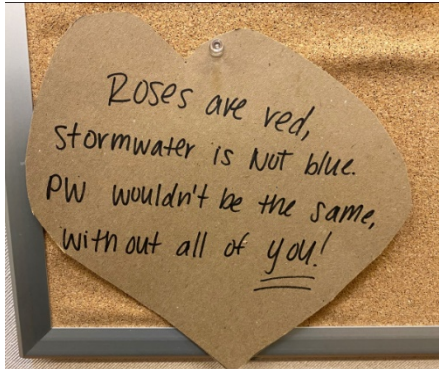 Roses are red,
stormwater is Not blue.
PW wouldn't be the same,
without all of you!